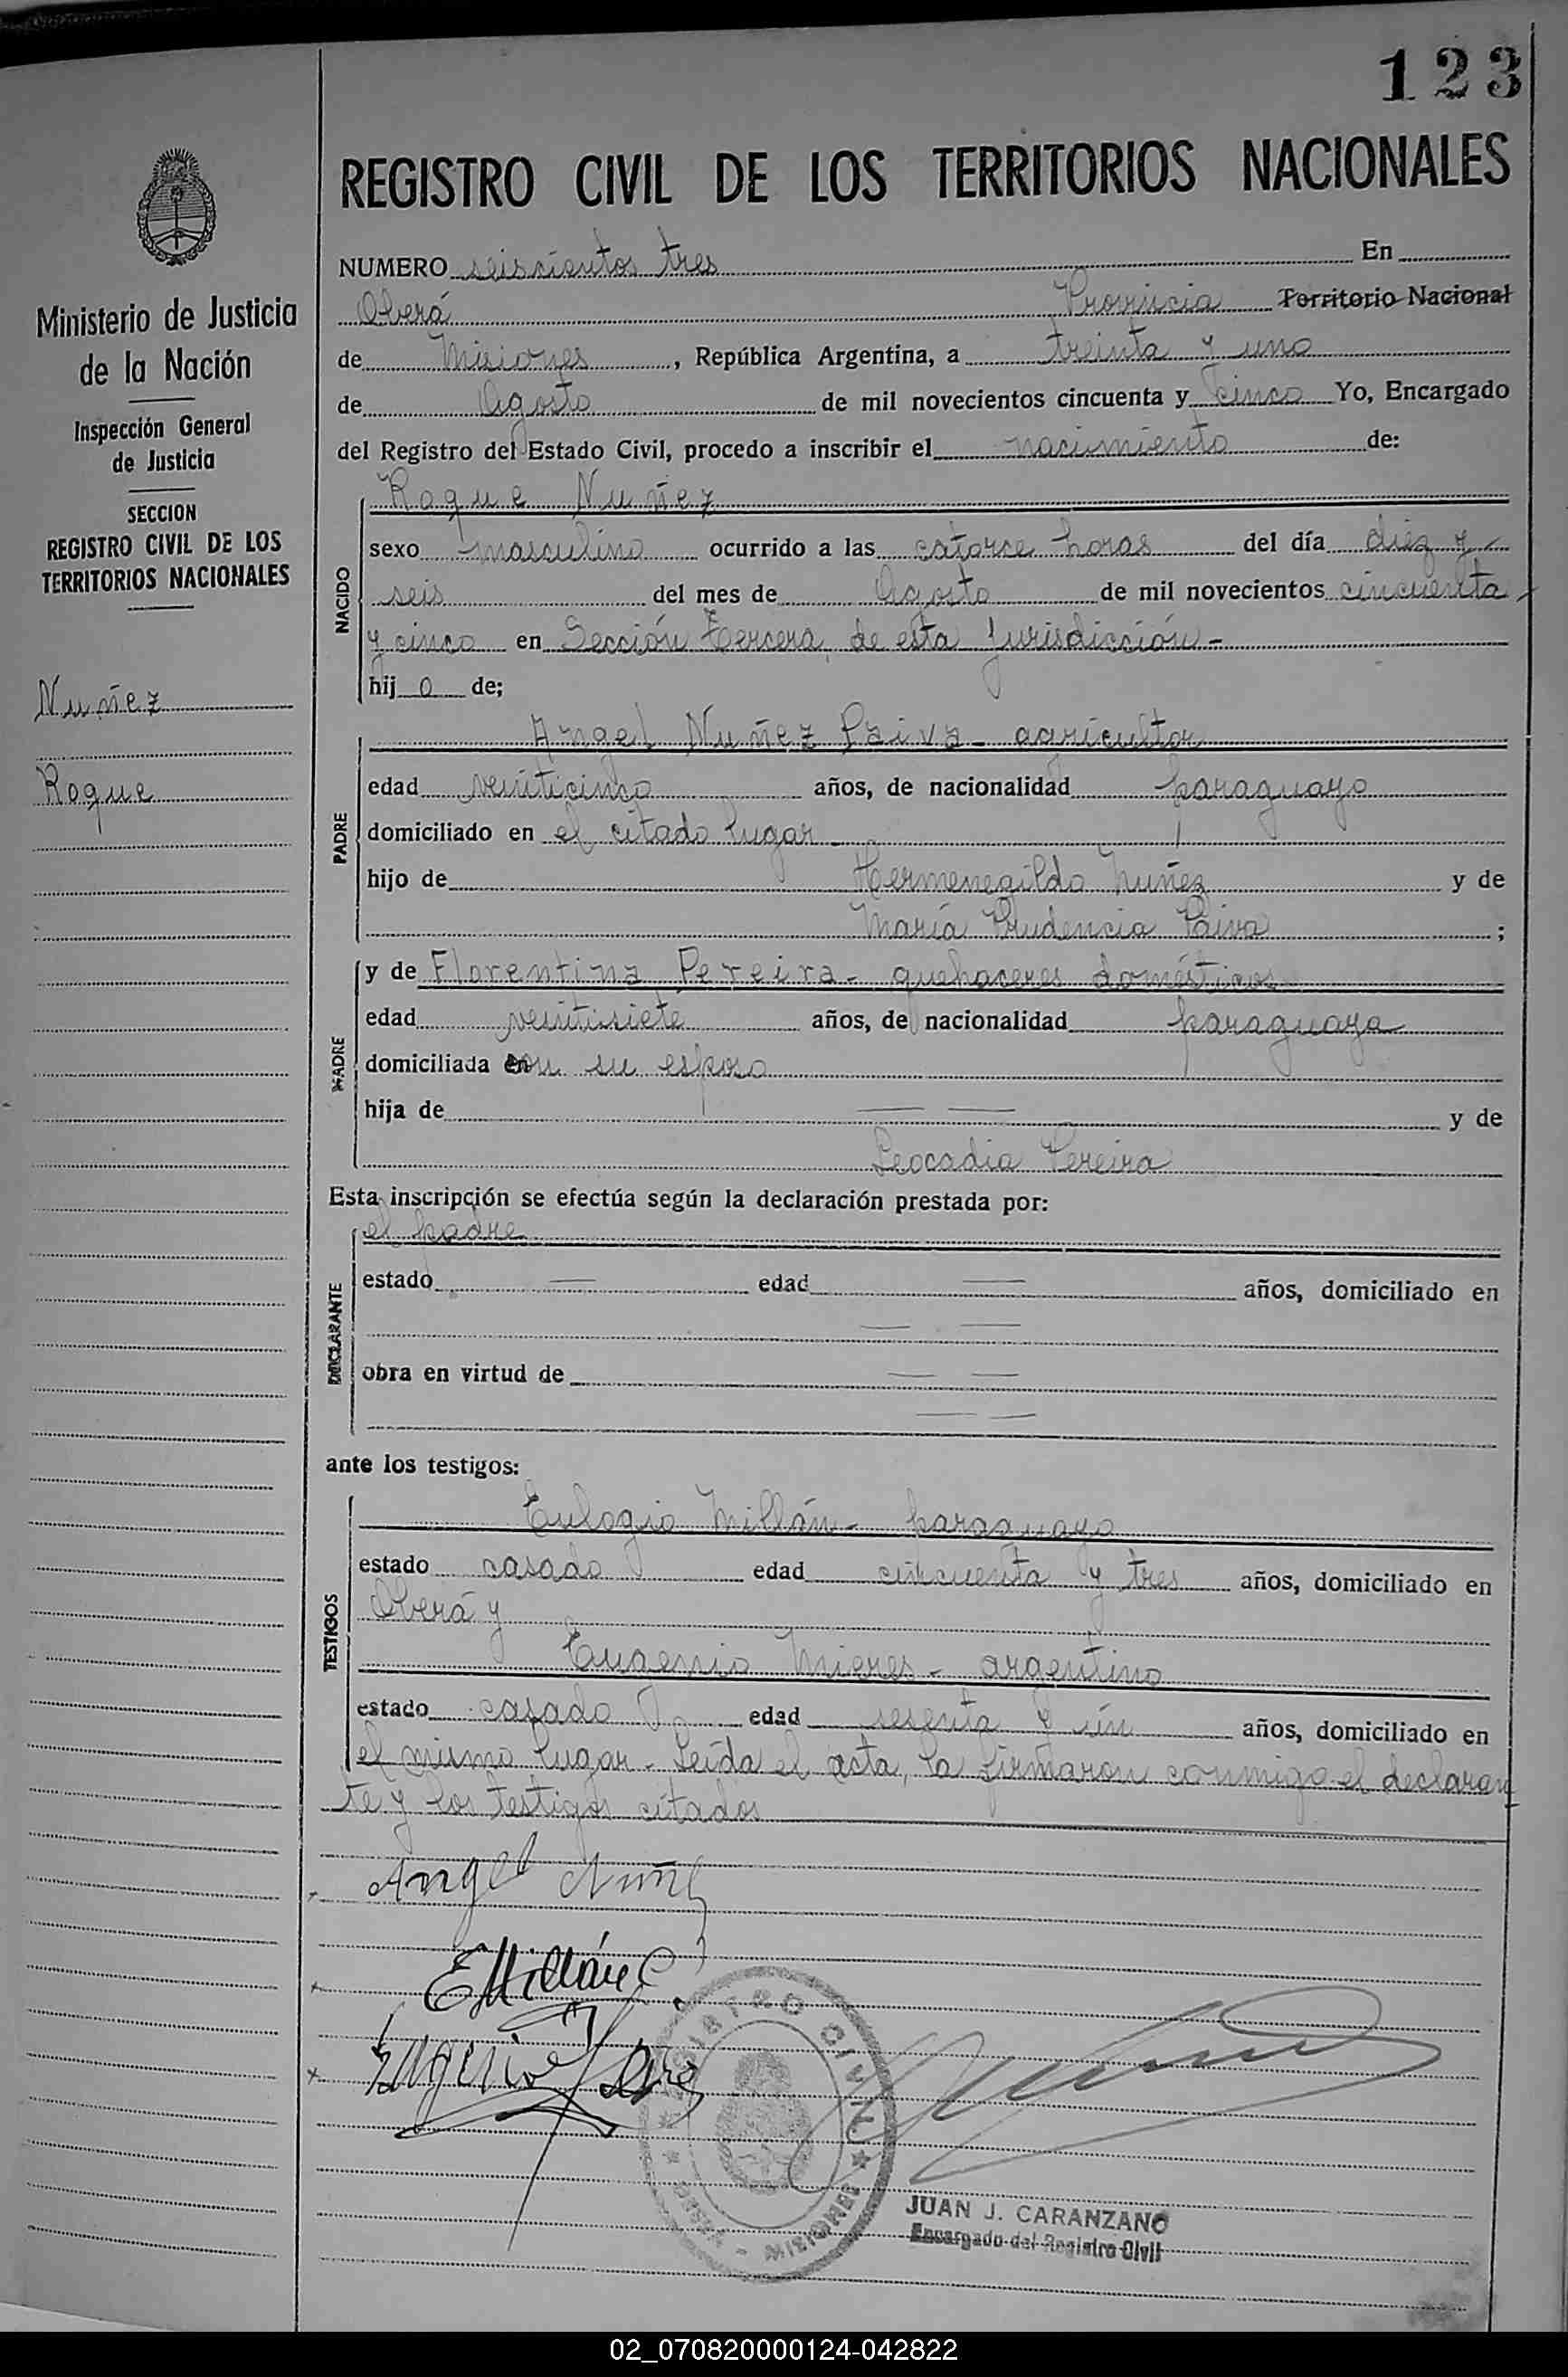 123
REGISTRO CIVIL DE LOS TERRITORIOS NACIONALES
Ministerio de Justicia
de la Nación
Inspección General
de Justicia
SECCION
REGISTRO CIVIL DE LOS
TERRITORIOS NACIONALES
Nuñez
Roque
NUMERO seiscientos tres En
Oberá Provincia Territorio Nacional
de Misiones, República Argentina, a treinta y uno
de Agosto de mil novecientos cincuenta y cinco Yo, Encargado
del Registro del Estado Civil, procedo a inscribir el nacimiento de:
NACIDO
Roque Nuñez
sexo masculino ocurrido a las catorce horas del día diez y
seis del mes de Agosto de mil novecientos cincuenta
y cinco en Sección tercera, de esta Jurisdicción -
hijo de;
PADRE
Angel Nuñez Paiva - agricultor
edad veinticinco años, de nacionalidad paraguayo
domiciliado en el citado lugar
hijo de Hermenegildo Nuñez y de
María Prudencia Paiva ;
MADRE
y de Florentina Pereira - quehaceres domésticos
edad veintisiete años, de nacionalidad paraguaya
domiciliada con su esposo
hija de — — y de
Leocadia Pereira
Esta inscripción se efectúa según la declaración prestada por:
DECLARANTE
el padre
estado — edad — años, domiciliado en
— —
obra en virtud de — —
— —
ante los testigos:
TESTIGOS
Eulogio Millán - paraguayo
estado casado edad cincuenta y tres años, domiciliado en
Oberá y
Eugenio Mieres - argentino
estado casado edad sesenta y un años, domiciliado en
el mismo lugar - Leída el acta, la firmaron conmigo el declaran
te y los testigos citados
Angel Nuñez
EMillán
Eugenio
REGISTRO CIVIL
MISIONES
JUAN J. CARANZANO
Encargado del Registro Civil
02_070820000124-042822